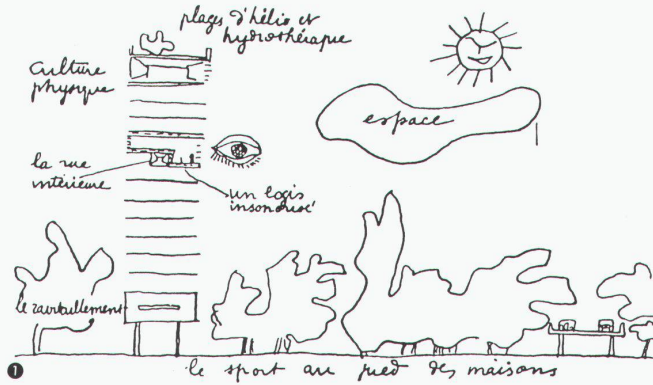 plages d'hélio et
hydrothérapie
culture
physique
espace
la rue
intérieure
un logis
insonorisé
le ravitaillement
le sport au pied des maisons
1